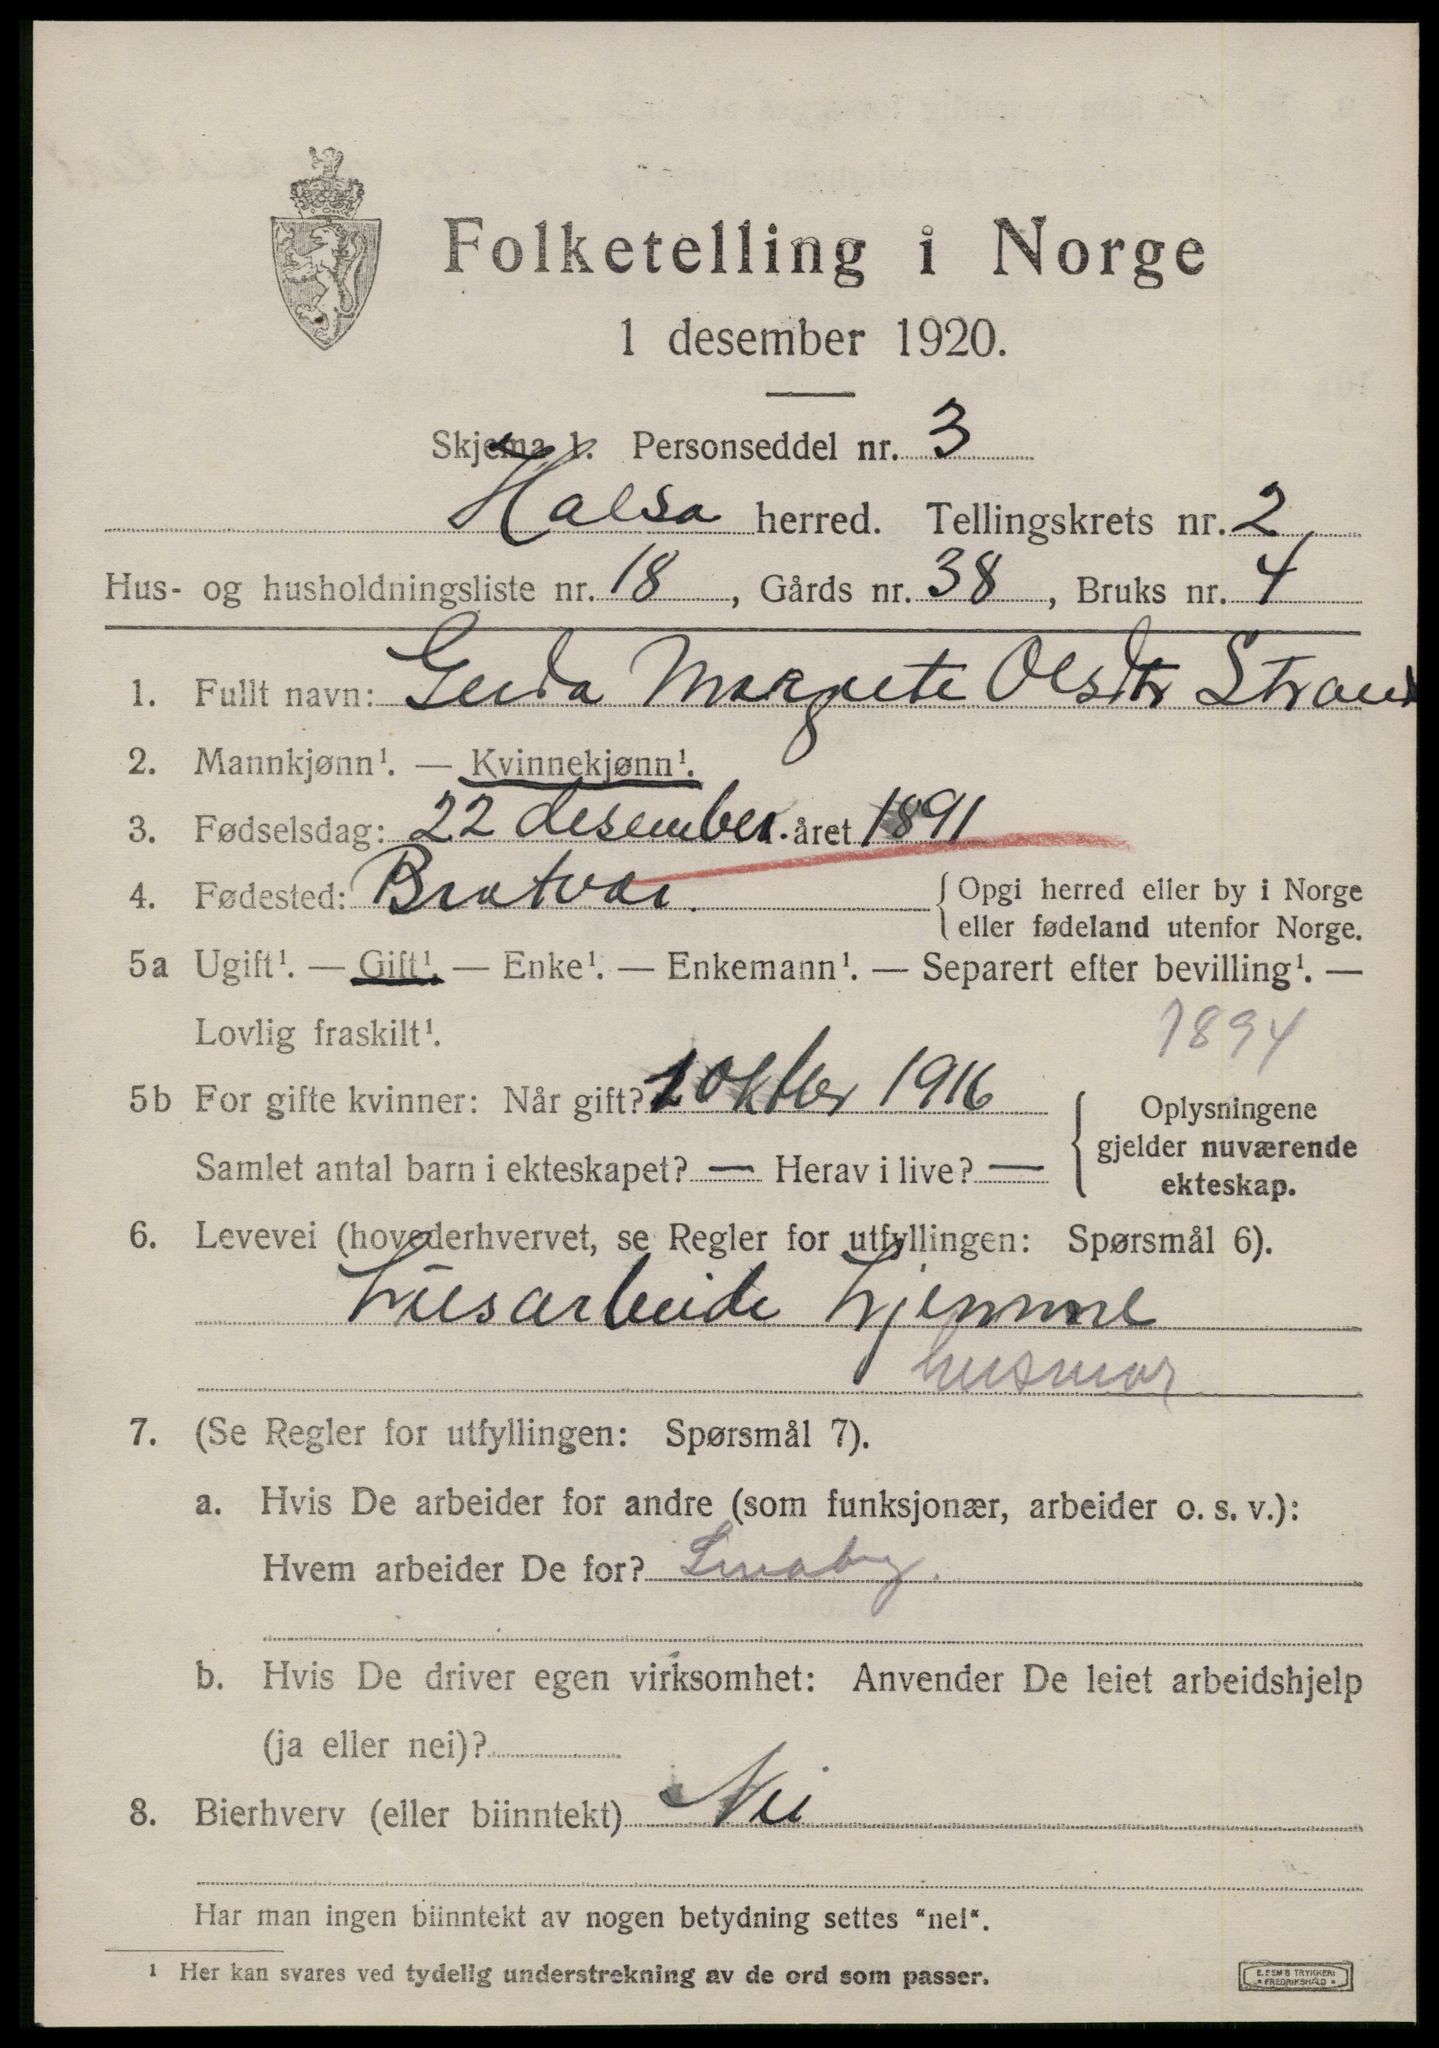 Folketelling i Norge
1 desember 1920.
Skjema 1. Personseddel nr. 3
Halsa herred. Tellingskrets nr. 2
Hus- og husholdningsliste nr. 18, Gårds nr. 38, Bruks nr. 4
1. Fullt navn: Gerda Margrete Olsdtr Strand
2. Mannkjønn¹. — Kvinnekjønn¹.
3. Fødselsdag: 22 desember. året 1891
4. Fødested: Bratvær. { Opgi herred eller by i Norge
eller fødeland utenfor Norge.
5a Ugift¹. — Gift¹. — Enke¹. — Enkemann¹. — Separert efter bevilling¹. —
Lovlig fraskilt¹. 1894
5b For gifte kvinner: Når gift? 1 oktbr 1916
Samlet antal barn i ekteskapet? — Herav i live? —
{ Oplysningene
gjelder nuværende
ekteskap.
6. Levevei (hovederhvervet, se Regler for utfyllingen: Spørsmål 6).
Husarbeide hjemme
husmor
7. (Se Regler for utfyllingen: Spørsmål 7).
a. Hvis De arbeider for andre (som funksjonær, arbeider o. s. v.):
Hvem arbeider De for? Småbr.
b. Hvis De driver egen virksomhet: Anvender De leiet arbeidshjelp
(ja eller nei)?
8. Bierhverv (eller biinntekt) Nei
Har man ingen biinntekt av nogen betydning settes "nei".
¹ Her kan svares ved tydelig understrekning av de ord som passer.
E. SEM'S TRYKKERI
• FREDRIKSHALD •